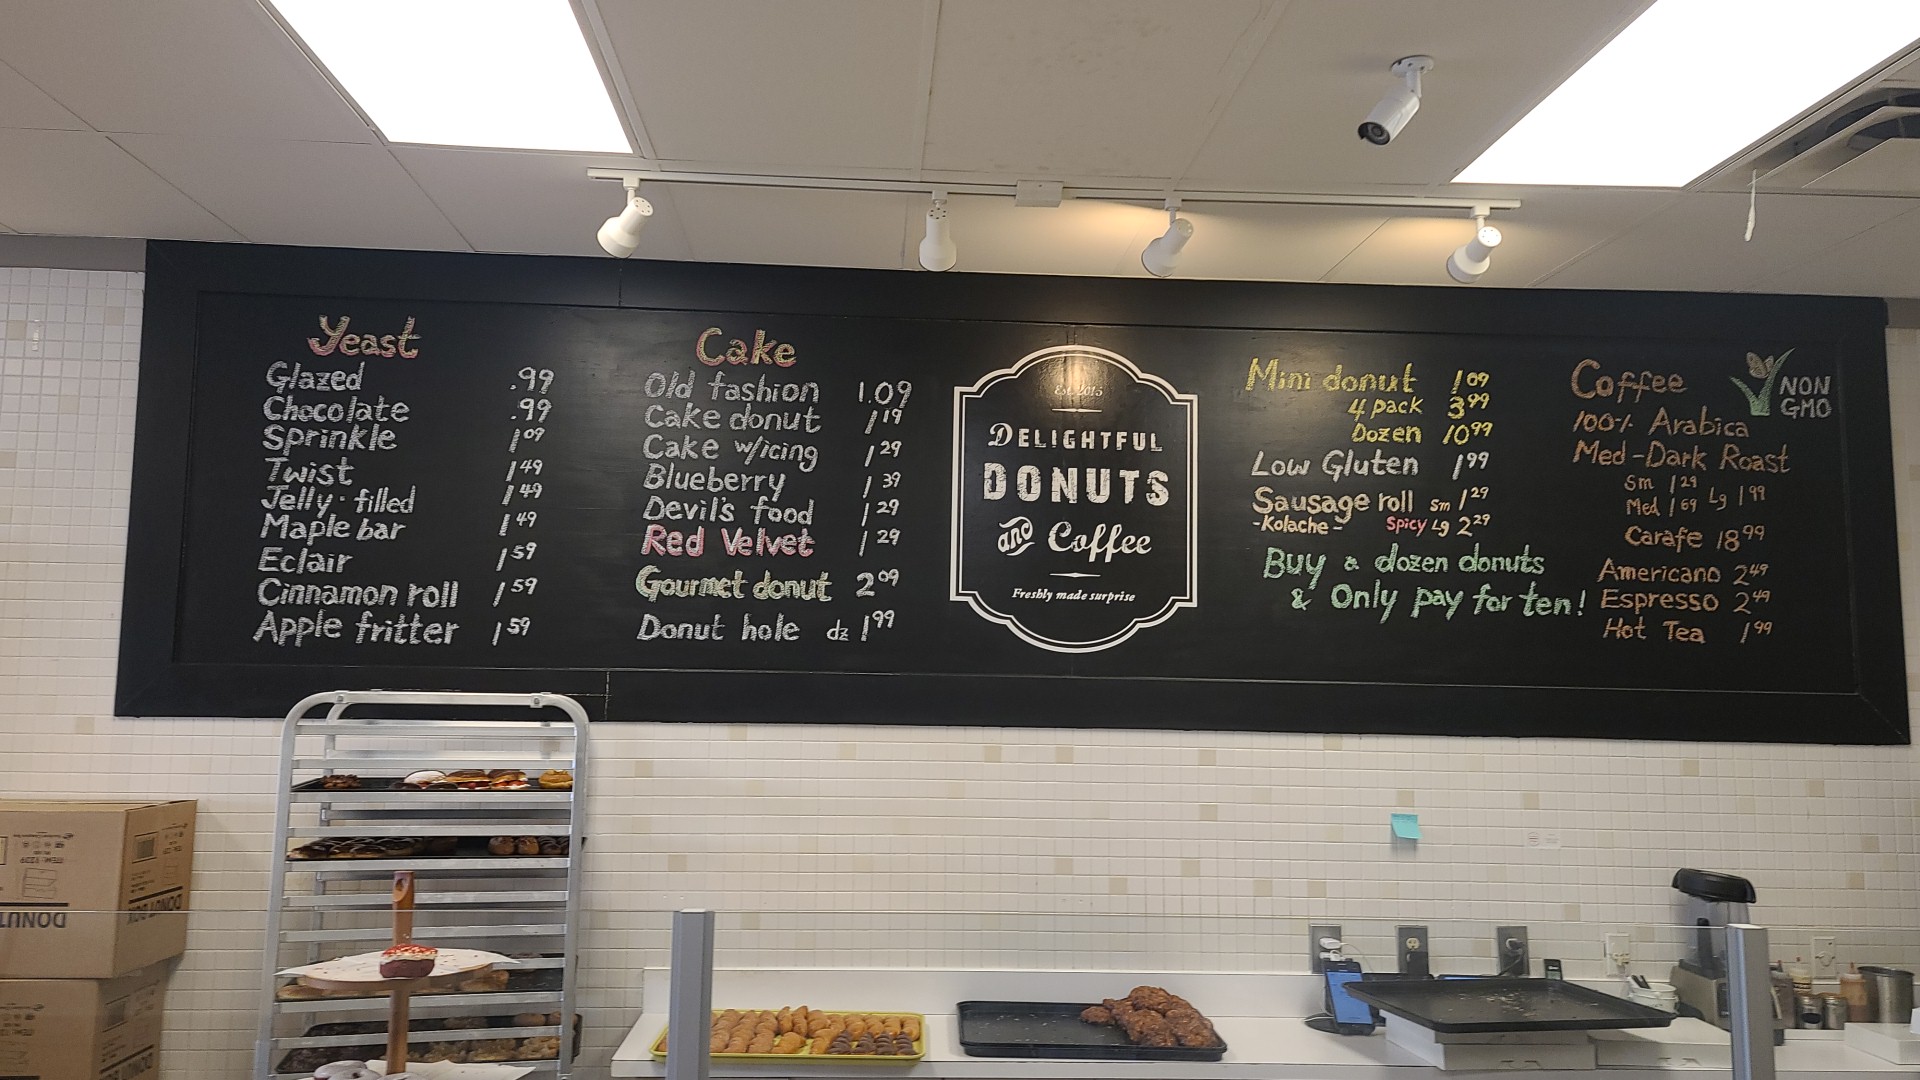 Yeast
Glazed .99
Chocolate .99
Sprinkle 1 09
Twist 1 49
Jelly-filled 1 49
Maple bar 1 49
Eclair 1 59
Cinnamon roll 1 59
Apple fritter 1 59
Cake
Old fashion 1.09
Cake donut 1 19
Cake w/icing 1 29
Blueberry 1 39
Devil's food 1 29
Red Velvet 1 29
Gourmet donut 2 09
Donut hole dz 1 99
Est. 2015
DELIGHTFUL
DONUTS
and Coffee
Freshly made surprise
Mini donut 1 09
4 pack 3 99
Dozen 10 99
Low Gluten 1 99
Sausage roll sm 1 29
-Kolache- Spicy Lg 2 29
Buy a dozen donuts
& Only pay for ten!
Coffee
NON
GMO
100% Arabica
Med-Dark Roast
Sm 1 29
Med 1 69 Lg 1 99
Carafe 18 99
Americano 2 49
Espresso 2 49
Hot Tea 1 99
DONUT
DONUT BOX